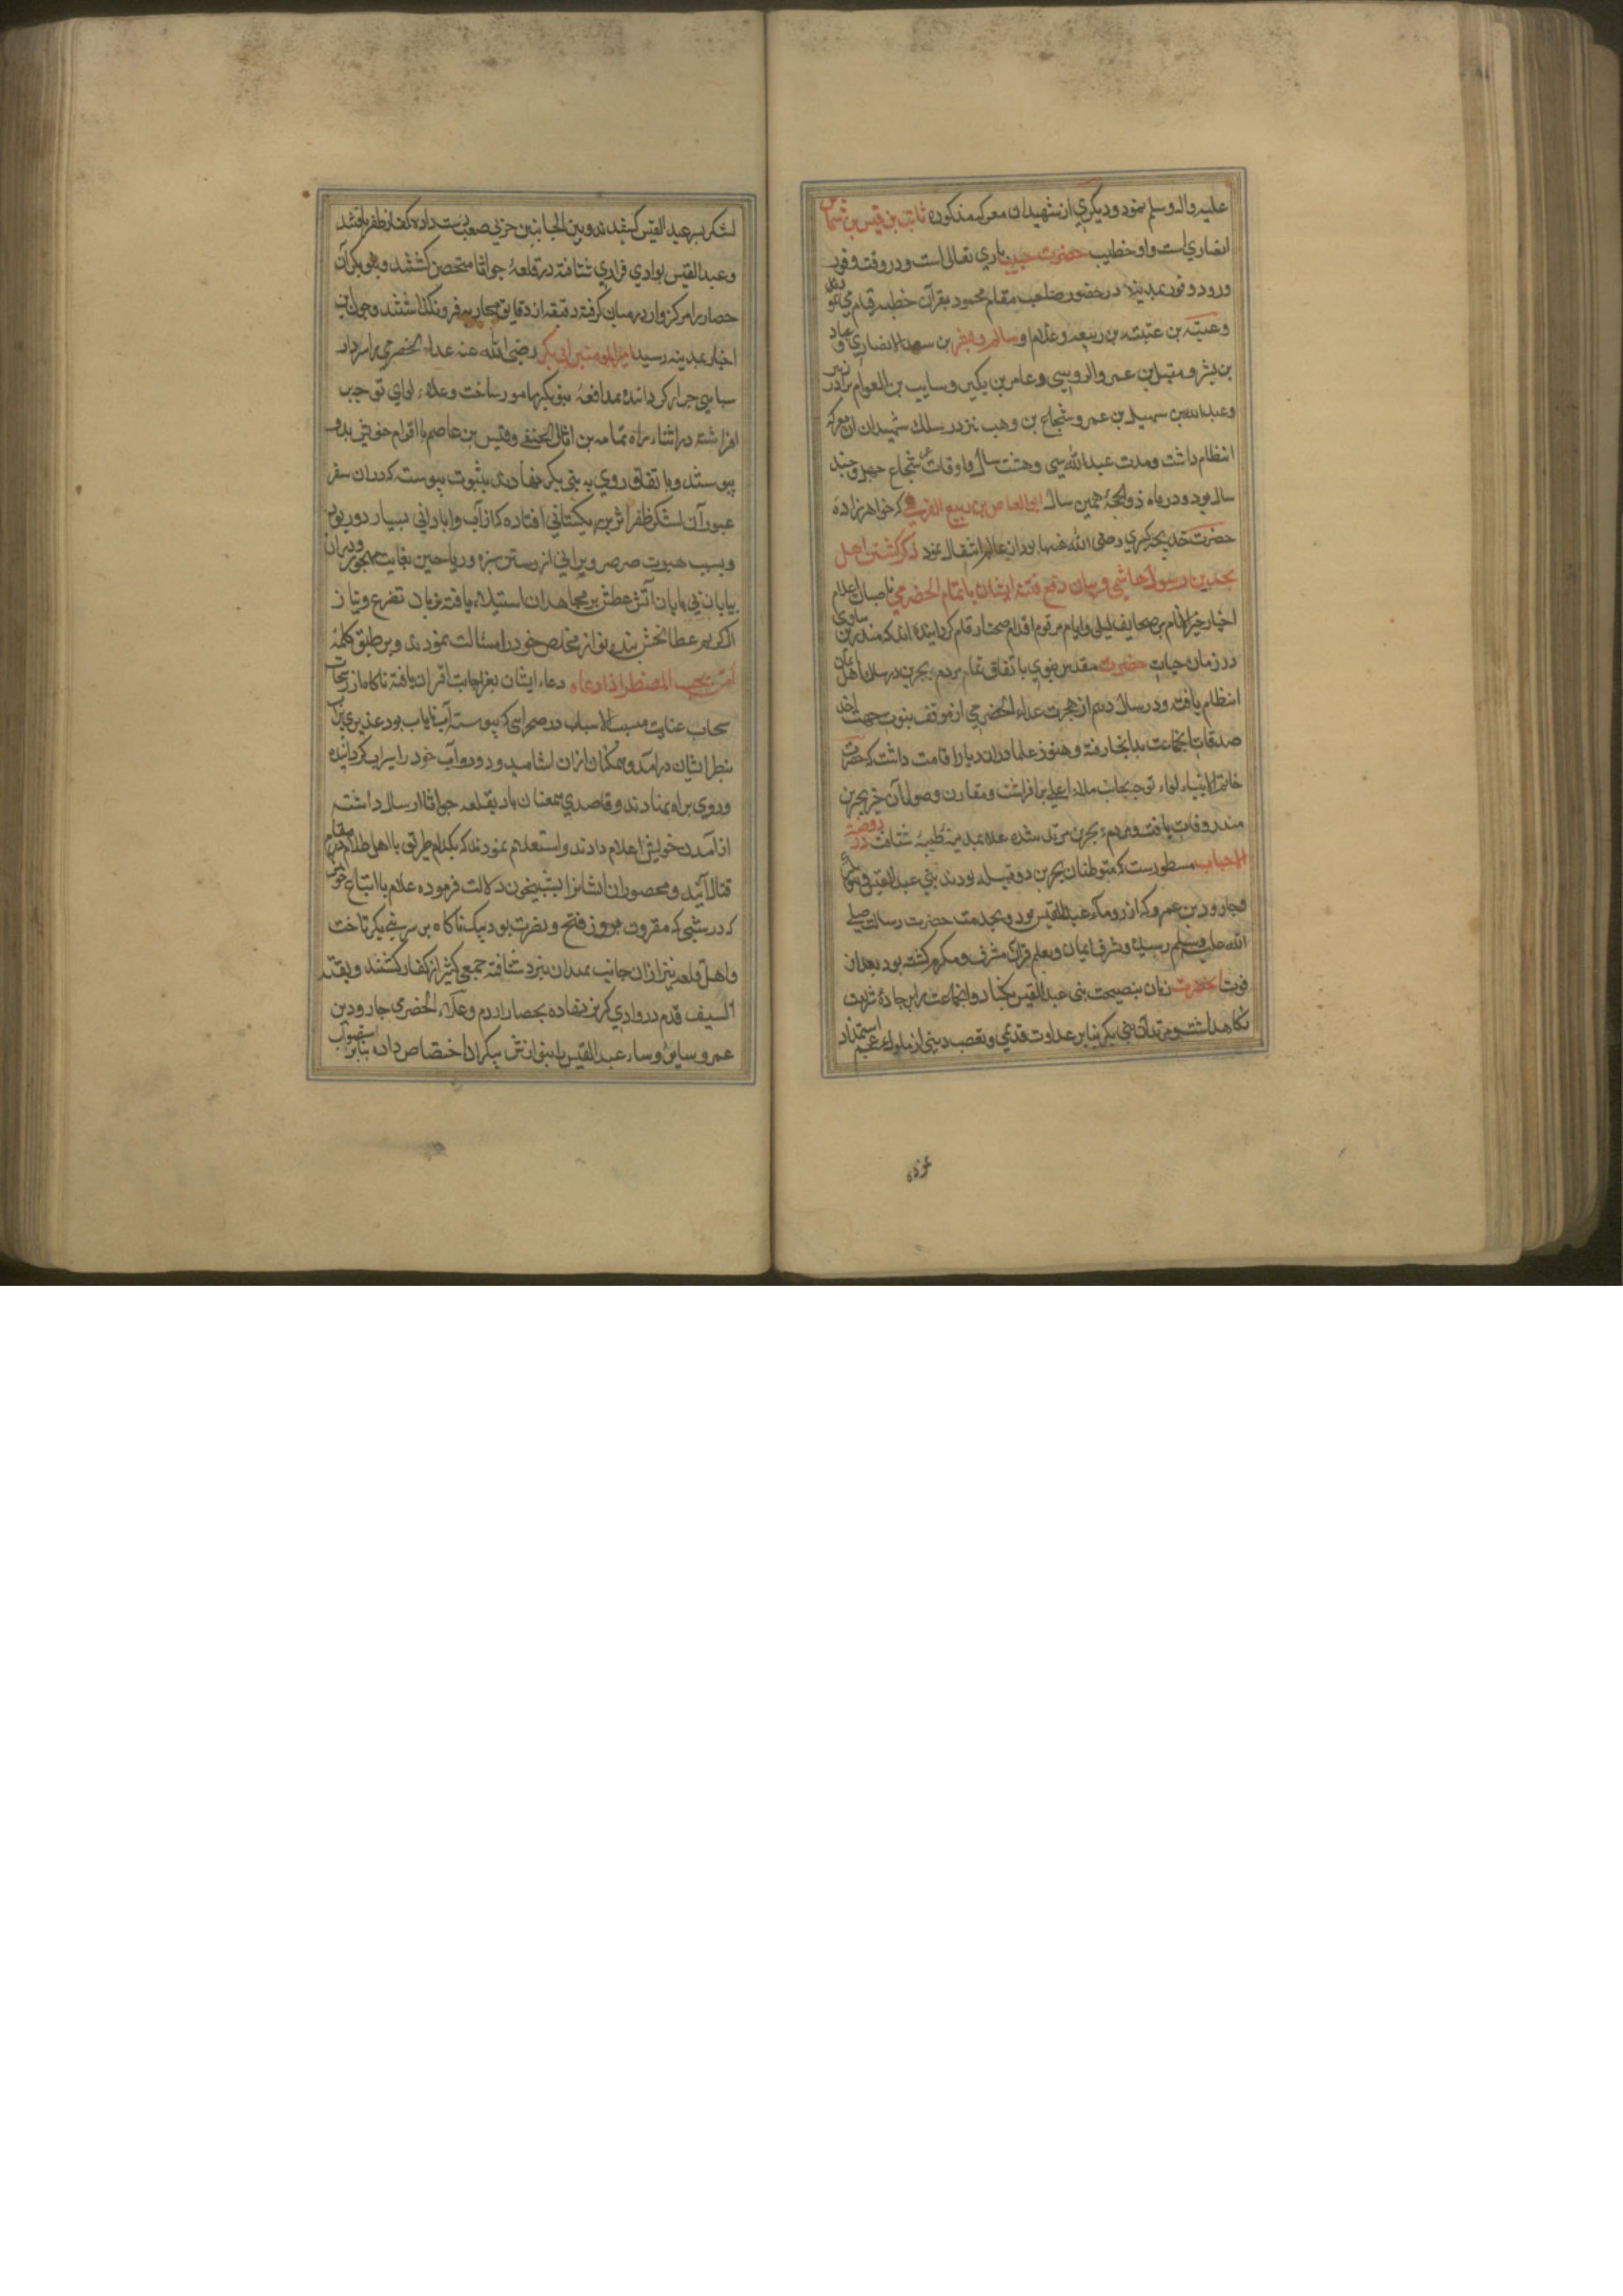 علیه واله وسلم نمود و دیگری از شهیدان معرکه مذکوره ثابت بن قیس بن شماس
انصاری است و او خطیب حضرت حبیب باری تعالی است و در وقت وفود
ورود وفود بمدینه در حضور صاحب مقام محمود بقرآن خطبه قیام می نمود
و عتبه بن ربیعه و غلام او سالم و بن سعد الانصاری و عباد
بن بشر و بن عمرو الدوسی و عامر بن بکیر و سایب بن العوام برادر زبیر
و عبدالله بن سهیل بن عمرو و شجاع بن وهب نیز در سلک شهیدان ان معرکه
انتظام داشت و مدت عبدالله سی و هشت سال و اوقات شجاع چهل و چند
سال بود و در ماه ذو الحجه همین سال ابی العاص بن ربیع القرشی که خواهرزاده
حضرت خدیجه کبری رضی الله عنها بود ازین عالم انتقال نمود ذکر کشتن اهل
بحرین از رسول هاشمی و بیان دفع فتنه ایشان باهتمام الحضرمی ناصبان اعلام
اخبار خیر الانام بر صحایف لیالی و ایام مرقوم اقلام صحت ارقام کردانیده اند که منذر بن ساوی
در زمان حیات حضرت مقدس نبوی باتفاق تمام مردم بحرین در سلک اهل ایمان
انتظام یافته و در سال دهم از هجرت علاء الحضرمی از موقف نبوت جهت اخذ
صدقات انجماعت بدانجا رفته و هنوز علا در ان دیار اقامت داشت که حضرت
خاتم الانبیاء لواء توجه بجانب ملاء اعلی برافراشت و مقارن وصول آن خبر بحرین
منذر وفات یافت و مردم بحرین مرتد شده علا بمدینه طیبه شتافت در روضة
الاحباب مسطورست که متوطنان بحرین دو قبیله بودند بنی عبد القیس و بنو بکر
و جارود بن عمرو که از روساء عبد القیس بود و بخدمت حضرت رسالت صلی
الله علیه وسلم رسیده و بشرف ایمان و تعلم قرآن مشرف و مکرم کشته بود بعد از
فوت انحضرت زبان بنصیحت بنی عبد القیس بکشاد و انجماعت را بر جادهٔ شریعت
نکاهداشت و مرتدان بنی بکر بنا بر عداوت قدیمی و تعصب دینی از ملوک عجم استمداد
نموده
لشکر بسر عبد القیس کشیدند و بین الجانبین حربی صعب دست داده کفار ظفر یافتند
و عبد القیس بوادی فرار شتافته در قلعهٔ جواثا متحصن کشتند و بنو بکر آن
حصار را مرکزوار در میان کرفته دقیقه از دقایق محاربه فرو نکذاشتند و چون این
اخبار بمدینه رسید امیرالمومنین ابی بکر رضی الله عنه علاء الحضرمی را سردار
سپاهی جرار کردانیده بمدافعهٔ بنو بکر مامور ساخت و علاء لوای توجه
افراشته در اثناء راه ثمامه بن اثال الحنفی و قیس بن عاصم با اقوام خویش بدو
پیوستند و باتفاق روی به بنی بکر نهادند بثبوت پیوسته که دران سفر
عبور آن لشکر ظفر اثر بریکستانی افتاد که از آب و ابادانی بسیار دور بود
و بسبب هبوب صرصر ویرانی از رستن سبزه و ریاحین بغایت مهجور و دران
بیابان بی پایان آتش عطش بر مجاهدان استیلاء یافته بزبان تضرع و نیاز
از کریم عطابخش بنده نواز مخلص خود را مسئالت نمودند و بر طبق کلمهٔ
امن یجیب المضطر اذا دعاه دعاء ایشان بعز اجابت اقتران یافته ناکاه از رشحات
سحاب عنایت مسبب الاسباب در صحرایی که پیوسته آب نایاب بود غدیری پر آب
بنظر ایشان درآمد و همکنان ازان اشامیده و دواب خود را سیراب کردانیده
و روی براه نهادند و قاصدی همعنان باد بقلعه جواثا ارسال داشته
از آمدن خویش اعلام دادند و استعلام نمودند که بکدام طریق با اهل ظلام در مقام
قتال آیند و محصوران ایشانرا بشبیخون دلالت فرموده علاء با اتباع خود
در شبی که مقرون بروز فتح و نصرت بود بیک ناکاه بر سر بنی بکر تاخت
و اهل قلعه نیز ازان جانب بمیدان نبرد شتافته جمعی کثیر از کفار کشتند و بقیة
السیف قدم در وادی کریز نهاده بحصار و علاء الحضرمی جارود بن
عمرو و سایر روساء عبد القیس را بنوازش بیکران اختصاص داده بنا بر استصواب